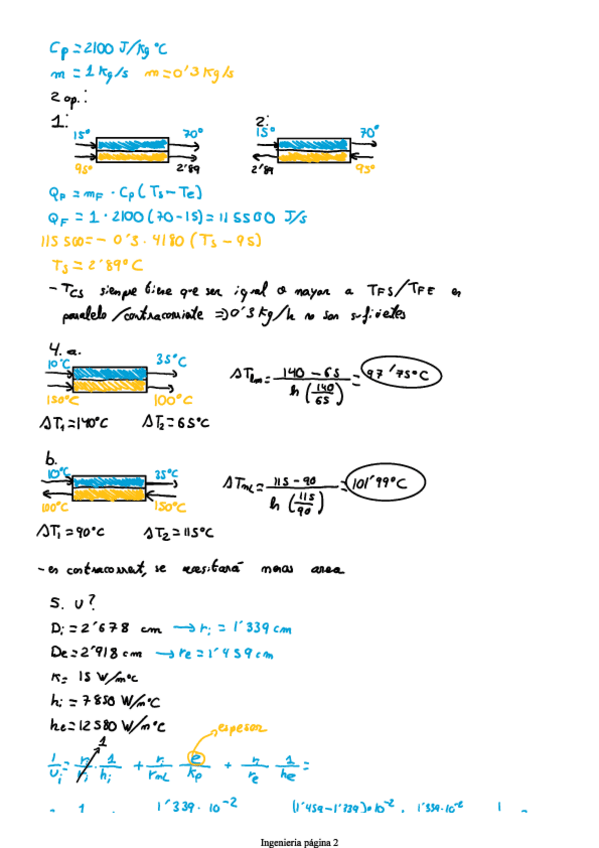 Cp = 2100 J/kg °C
m = 1 kg/s m = 0'3 kg/s
2 op.:
1: 2:
15° 70° 15° 70°
95° 2'89 2'89 95°
QF = mF · Cp (Ts - Te)
QF = 1 · 2100 (70 - 15) = 115500 J/s
115500 = - 0'3 · 4180 (Ts - 95)
Ts = 2'89°C
- TCS siempre tiene que ser igual o mayor a TFS/TFE en
paralelo/contracorriente => 0'3 kg/h no son suficientes
4. a.
10°C 35°C
150°C 100°C
ΔTlm = 140 - 65 / ln (140/65) = 97'75°C
ΔT1 = 140°C ΔT2 = 65°C
b.
10°C 35°C
100°C 150°C
ΔTml = 115 - 90 / ln (115/90) = 101'99°C
ΔT1 = 90°C ΔT2 = 115°C
- en contracorrient, se necesitará menos area
5. U?
Di = 2'678 cm → ri = 1'339 cm
De = 2'918 cm → re = 1'459 cm
K = 15 W/m°C
hi = 7850 W/m°C
he = 12580 W/m°C
espesor
1
1/Ui = ri/ri · 1/hi + ri/rml e/kp + ri/re 1/he =
1 1'339 · 10⁻²
Ingenieria página 2